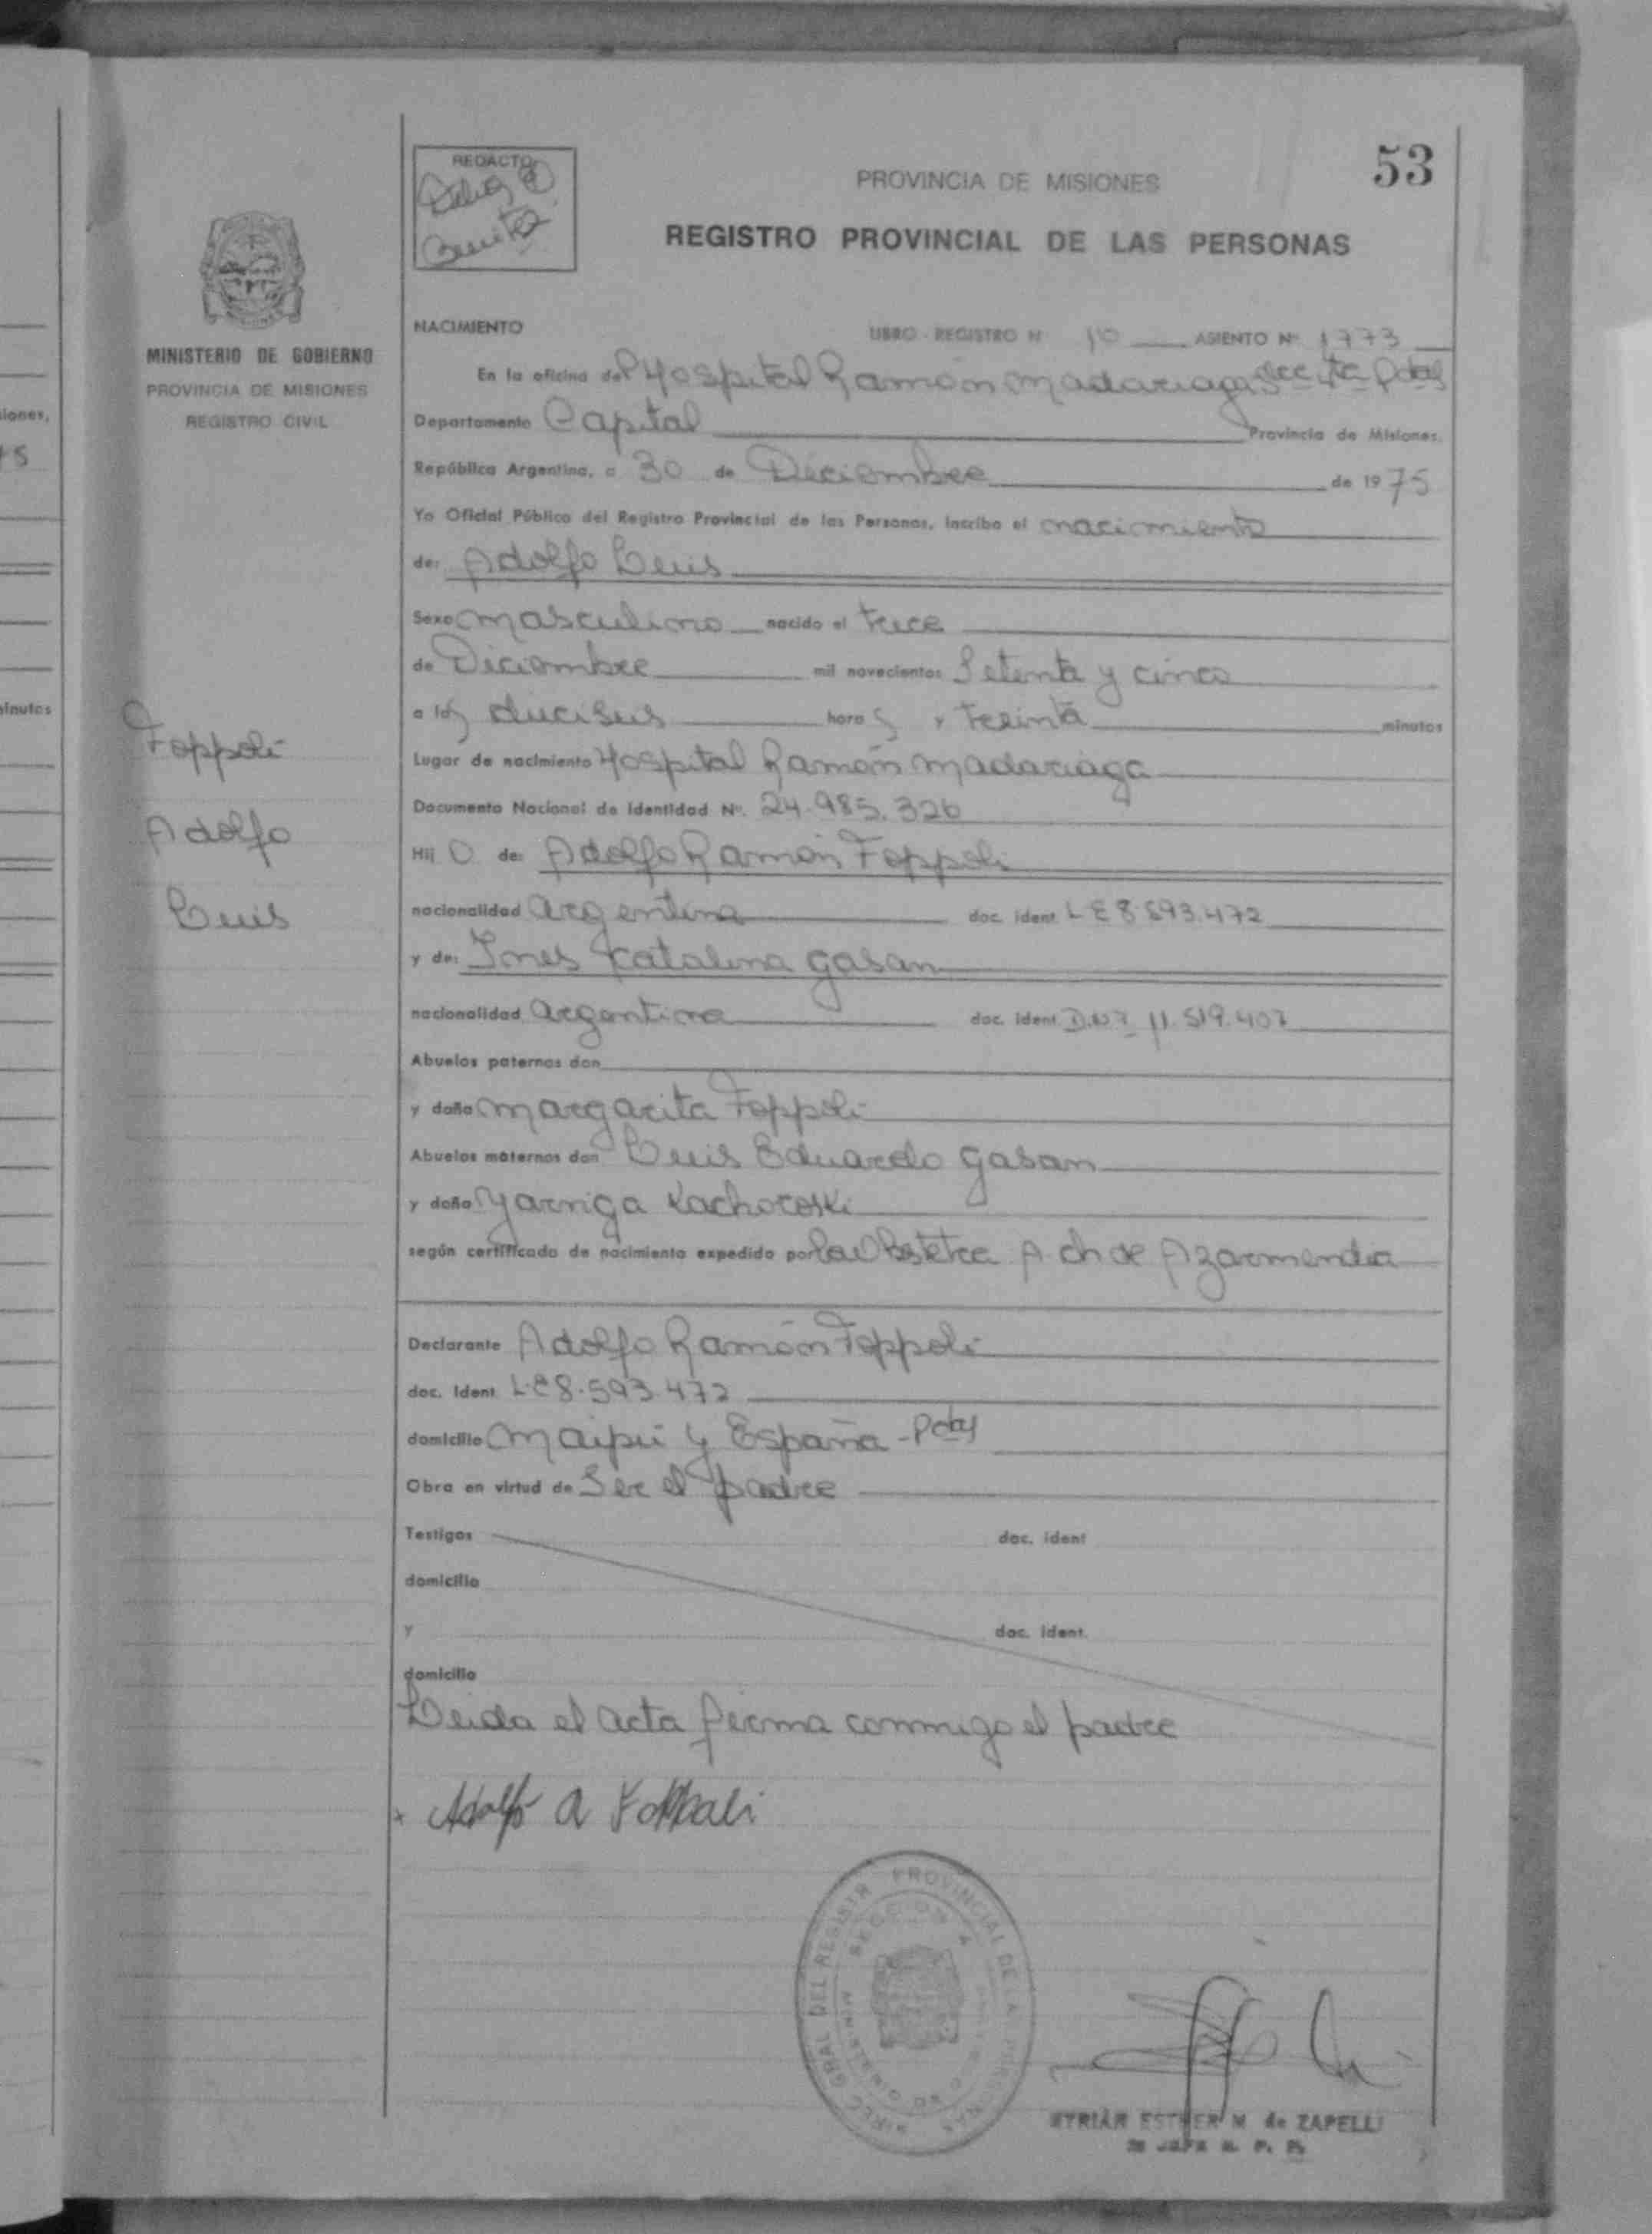 53
REDACTO
PROVINCIA DE MISIONES
REGISTRO PROVINCIAL DE LAS PERSONAS
MINISTERIO DE GOBIERNO
PROVINCIA DE MISIONES
REGISTRO CIVIL
NACIMIENTO LIBRO - REGISTRO Nº 10 ASIENTO Nº 1773
En la oficina del Hospital Ramón Madariaga Secc 4ta Pdas
Departamento Capital Provincia de Misiones,
República Argentina, a 30 de Diciembre de 1975
Yo Oficial Público del Registro Provincial de las Personas, inscribo el nacimiento
de: Adolfo Luis
Sexo masculino nacido el trece
de Diciembre mil novecientos Setenta y cinco
a las dieciseis horas y treinta minutos
Lugar de nacimiento Hospital Ramón Madariaga
Documento Nacional de Identidad Nº. 24.985.326
Hij o de: Adolfo Ramón Foppoli
nacionalidad argentina doc. ident. L E 8.593.472
y de: Ines Catalina Gasan
nacionalidad argentina doc. ident. D.N.I 11.519.407
Abuelos paternos don
y doña Margarita Foppoli
Abuelos maternos don Luis Eduardo Gasan
y doña Yarniga
según certificado de nacimiento expedido por la Obstetra A. Ch de Azarmendia
Declarante Adolfo Ramón Foppoli
doc. Ident. L.E 8.593.472
domicilio Maipú y España - Pdas
Obra en virtud de Ser el padre
Testigos doc. ident
domicilio
y doc. ident.
domicilio
Leida el acta firma conmigo el padre
Adolfo R Foppoli
Foppoli
Adolfo
Luis
DIREC. GRAL. DEL REGISTR. PROVINCIAL DE LA PERSONAS
SECCION
MYRIAN ESTHER M. de ZAPELLI
iones,
75
minutos